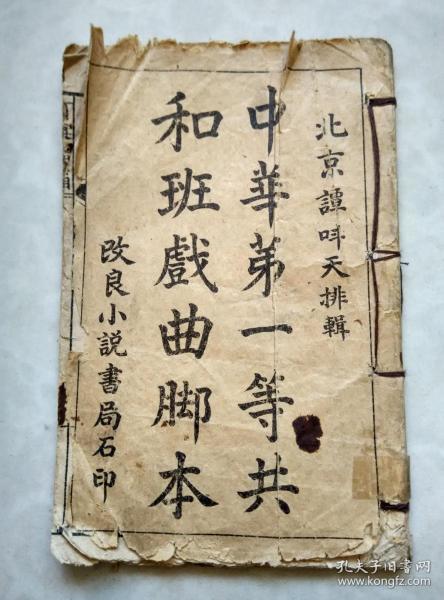 北京譚呌天排輯
中華苐一等共
和班戲曲脚本
改良小説書局石印
孔夫子旧书网
www.kongfz.com